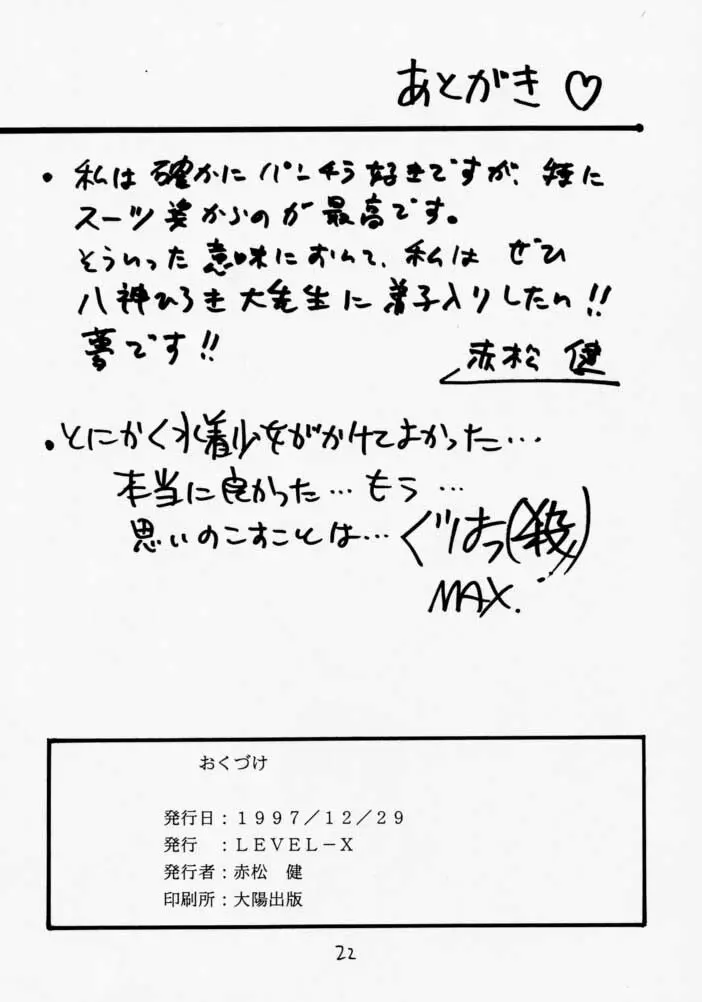 あとがき♡
・私は確かにパンチラ好きですが、特に
スーツ姿からのが最高です。
そういった意味において、私は ぜひ
八神ひろき大先生に弟子入りしたい!!
夢です!!
赤松 健
・とにかく水着少女がかけてよかった…
本当に良かった…もう…
思いのこすことは…ぐはっ(殺)
MAX.
おくづけ
発行日:1997/12/29
発行 :LEVEL-X
発行者:赤松 健
印刷所:大陽出版
22